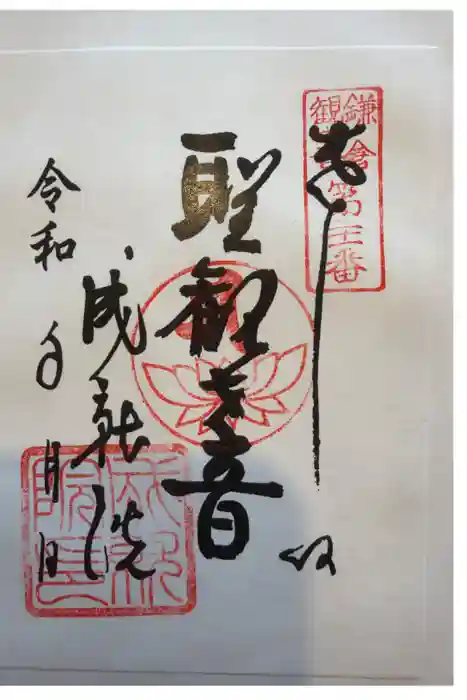 鎌倉
観音
第二十一番
奉拝
聖観音
成就院
令和年月日